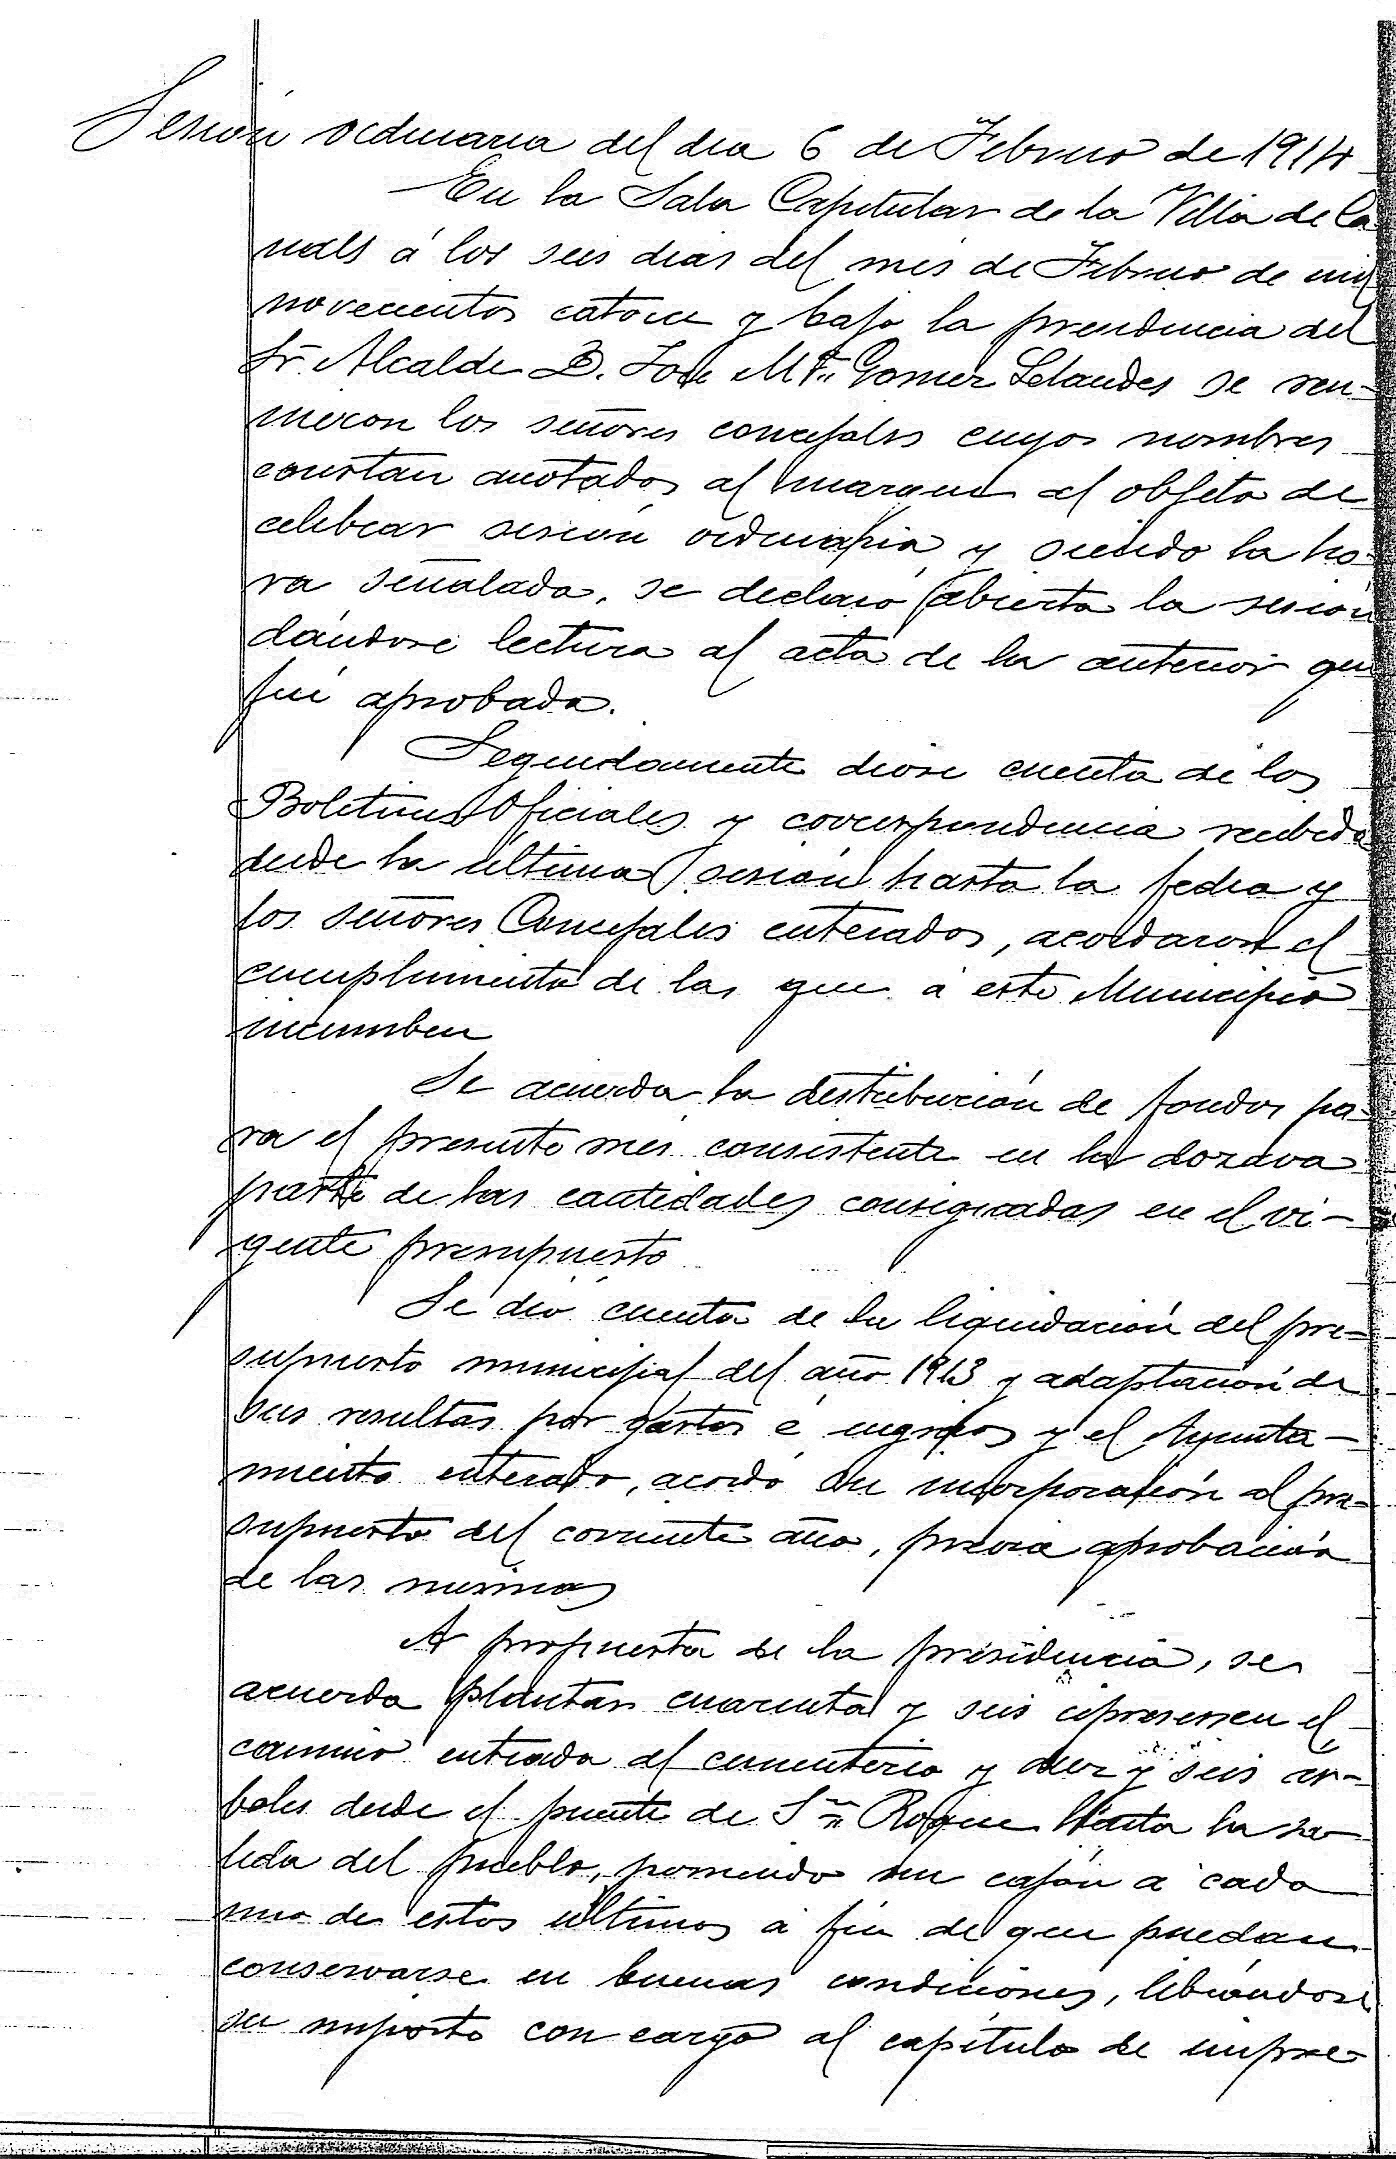 Sesión ordinaria del dia 6 de Febrero de 1914
En la Sala Capitular de la Villa de Ca
nals á los seis dias del mes de Febrero de mil
novecientos catorce y bajo la presidencia del
Sr. Alcalde D. Jose Mª Gomez Selandes se reu-
nieron los señores concejales cuyos nombres
constan anotados al margen al objeto de
celebrar sesión ordinaria y siendo la ho-
ra señalada, se declaró abierta la sesión
dándose lectura al acta de la anterior que
fué aprobada.
Seguidamente diose cuenta de los
Boletines Oficiales y correspondencia recibida
desde la última sesión hasta la fecha y
los señores Concejales enterados, acordaron el
cumplimiento de las que á este Municipio
incumben
Se acuerda la distribución de fondos pa-
ra el presente mes consistente en la dozava
parte de las cantidades consignadas en el vi-
gente presupuesto
Se dió cuenta de la liquidación del pre-
supuesto municipal del año 1913 y adaptación de
sus resultas por gastos é ingresos y el Ayunta-
miento enterado, acordó su incorporación al pre-
supuesto del corriente año, previa aprobación
de las mismas
A propuesta de la presidencia, se
acuerda plantar cuarenta y seis cipreses en el
camino entrada al cementerio y diez y seis ár-
boles desde el puente de Sn Roque hasta la sa-
lida del pueblo, poniendo un cajón á cada
uno de estos últimos á fin de que puedan
conservarse en buenas condiciones, librándose
su importe con cargo al capítulo de impre-